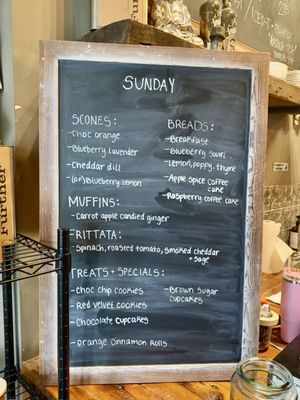 SUNDAY
SCONES:
-Choc orange
-Blueberry lavender
-Cheddar dill
-(GF) Blueberry lemon
BREADS:
-Breakfast
-Blueberry swirl
-Lemon, poppy, thyme
-Apple spice coffee
cake
-Raspberry coffee cake
MUFFINS:
-Carrot apple candied ginger
FRITTATA:
-Spinach, roasted tomato, smoked cheddar
+ sage
TREATS + SPECIALS:
-Choc chip cookies
-Red velvet cookies
-Chocolate cupcakes
-Orange Cinnamon Rolls
-Brown Sugar
cupcakes
Further